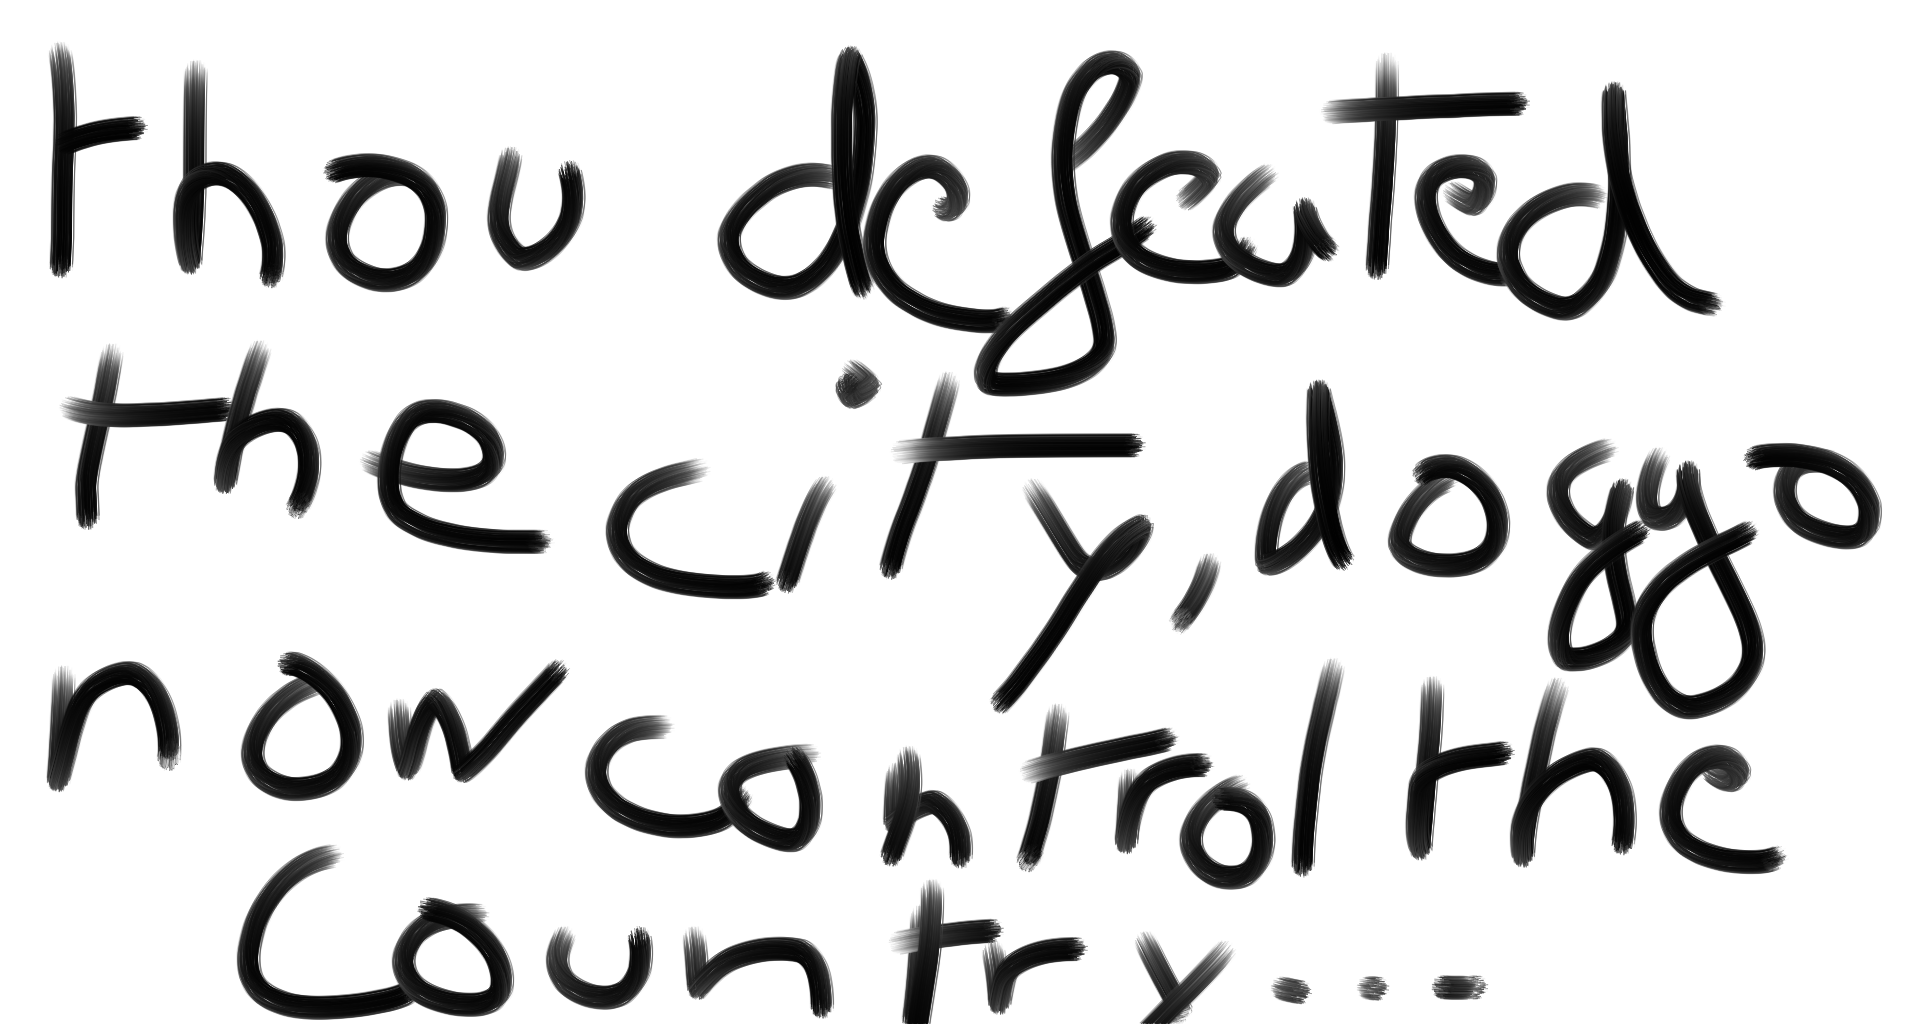 thou defeated
the city, doggo
now control the
country...